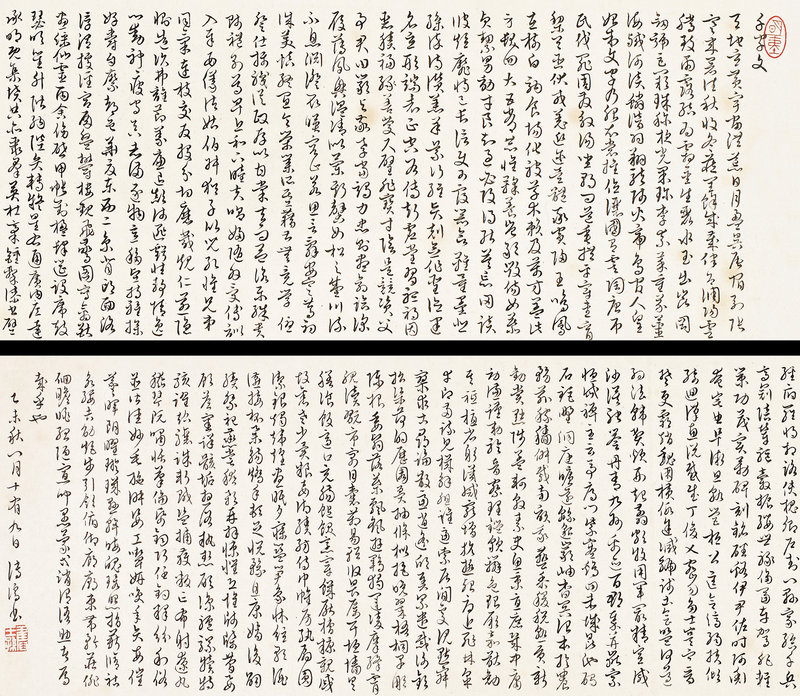 千字文
天地玄黃宇宙洪荒日月盈昃辰宿列張
寒來暑往秋收冬藏閏餘成歲律召調陽雲
騰致雨露結為霜金生麗水玉出崑岡
劍號巨闕珠稱夜光果珍李柰菜重芥薑
海鹹河淡鱗潛羽翔龍師火帝鳥官人皇
始制文字乃服衣裳推位讓國有虞陶唐弔
民伐罪周發殷湯坐朝問道垂拱平章愛育
黎首臣伏戎羌遐邇壹體率賓歸王鳴鳳
在樹白駒食場化被草木賴及萬方蓋此
身髮四大五常恭惟鞠養豈敢毀傷女慕
貞絜男效才良知過必改得能莫忘罔談
彼短靡恃己長信使可覆器欲難量墨悲
絲染詩讚羔羊景行維賢剋念作聖德建
名立形端表正空谷傳聲虛堂習聽禍因
惡積福緣善慶尺璧非寶寸陰是競資父
事君曰嚴與敬孝當竭力忠則盡命臨深
履薄夙興溫凊似蘭斯馨如松之盛川流
不息淵澄取暎容止若思言辭安定篤初
誠美慎終宜令榮業所基藉甚無竟學優
登仕攝職從政存以甘棠去而益詠樂殊貴
賤禮別尊卑上和下睦夫唱婦隨外受傅訓
入奉母儀諸姑伯叔猶子比兒孔懷兄弟
同氣連枝交友投分切磨箴規仁慈隱
惻造次弗離節義廉退顛沛匪虧性靜情逸
心動神疲守真志滿逐物意移堅持雅操
好爵自縻都邑華夏東西二京背邙面洛
浮渭據涇宮殿盤鬱樓觀飛驚圖寫禽獸
畫綵仙靈丙舍傍啟甲帳對楹肆筵設席鼓
瑟吹笙升階納陛弁轉疑星右通廣內左達
承明既集墳典亦聚群英杜稾鍾隸漆書壁
經府羅將相路俠槐卿戶封八縣家給千兵
高冠陪輦驅轂振纓世祿侈富車駕肥輕
策功茂實勒碑刻銘磻溪伊尹佐時阿衡
奄宅曲阜微旦孰營桓公匡合濟弱扶傾
綺迴漢惠說感武丁俊乂密勿多士寔寧晉
楚更霸趙魏困橫假途滅虢踐土會盟何遵
約法韓弊煩刑起翦頗牧用軍最精宣威
沙漠馳譽丹青九州禹跡百郡秦并嶽宗
恆岱禪主云亭雁門紫塞雞田赤城昆池碣
石鉅野洞庭曠遠綿邈巖岫杳冥治本於農
務茲稼穡俶載南畝我藝黍稷稅熟貢新
勸賞黜陟孟軻敦素史魚秉直庶幾中庸
勞謙謹敕聆音察理鑑貌辨色貽厥嘉猷勉
其祗植省躬譏誡寵增抗極殆辱近恥林皋
幸即兩疏見機解組誰逼索居閒處沉默寂
寥求古尋論散慮逍遙欣奏累遣慼謝歡
招渠荷的歷園莽抽條枇杷晚翠梧桐早彫
陳根委翳落葉飄颻遊鵾獨運凌摩絳霄
耽讀翫市寓目囊箱易輶攸畏屬耳垣牆具
膳飡飯適口充腸飽飫烹宰飢厭糟糠親戚
故舊老少異糧妾御績紡侍巾帷房紈扇圓
潔銀燭煒煌晝眠夕寐藍筍象床絃歌酒
讌接杯舉觴矯手頓足悅豫且康嫡後嗣
續祭祀蒸嘗稽顙再拜悚懼恐惶牋牒簡要
顧答審詳骸垢想浴執熱願涼驢騾犢特
駭躍超驤誅斬賊盜捕獲叛亡布射遼丸
嵇琴阮嘯恬筆倫紙鈞巧任釣釋紛利俗
並皆佳妙毛施淑姿工顰妍笑年矢每催
曦暉朗曜璇璣懸斡晦魄環照指薪修祜
永綏吉劭矩步引領俯仰廊廟束帶矜莊徘
徊瞻眺孤陋寡聞愚蒙等誚謂語助者焉
哉乎也
乙未秋八月十有九日 溥儒書